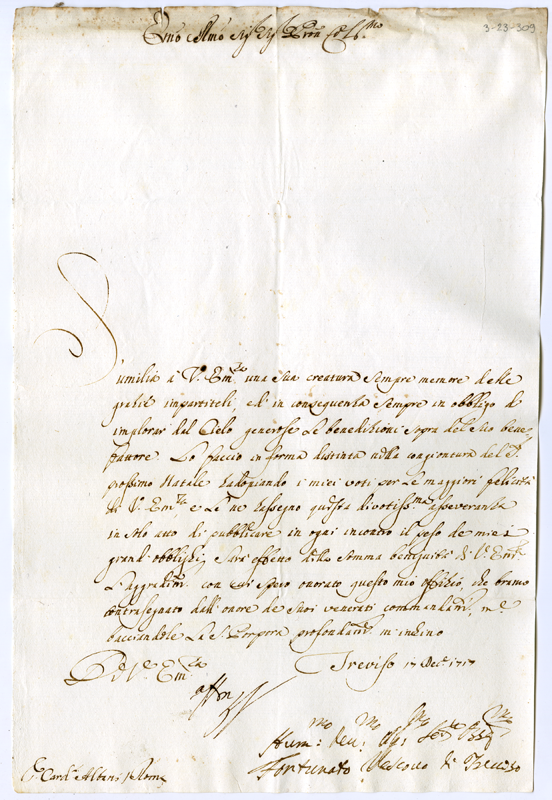 Em̃o e Rmo Sigr Sigr Pron Colmo
3-23-309
S'umilia à V. Emza una sua creatura sempre memore delle
gratie impartiteli, e d'in conseguenza sempre in obbligo d'
implorar dal Cielo generose le benedizioni sopra del suo bene-
fattore. Lo faccio in forma distinta nella congiontura del S.
prossimo Natale, radopiando i miei voti per le maggiori felicità
di V. Emza, e Le ne rassegno questa divotissma asseveranza
in solo atto di pubblicare in ogni incontro il peso de miei
grandi obblighi. Sarà effetto della somma benignità di V. Emza
L'aggredirmi con
spero onorato questo mio offitio, che bramo
contrasegnato dall'onore de suoi venerati commandamti, me
bacciandole la S. Porpora profondamte m'inchino
Di V. Emza
Treviso 17 Dec. 1717
Humo: Devmo: Obbmo Serre
Fortunato Vescovo di Treviso
Card. Albani Roma